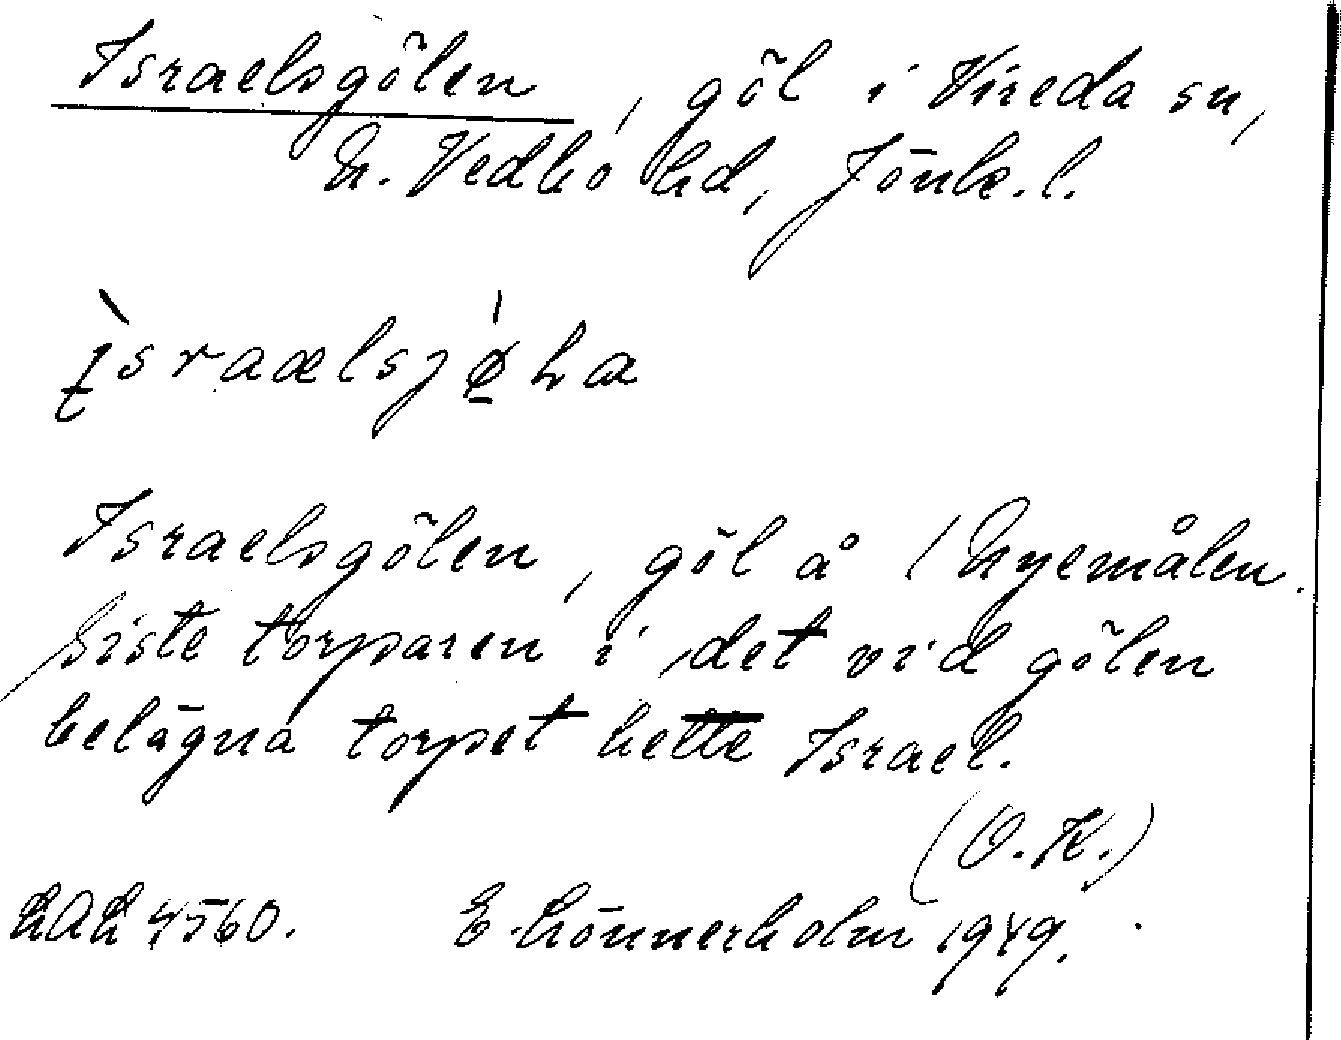 Israelsgölen, göl i Vireda sn,
N. Vedbo hd, Jönk. l.
Israelsgölen, göl å Nyemålen.
Siste torparen i det vid gölen
belägna torpet hette Israel.
(O.K.)
4560. E Lönnerholm 1949.